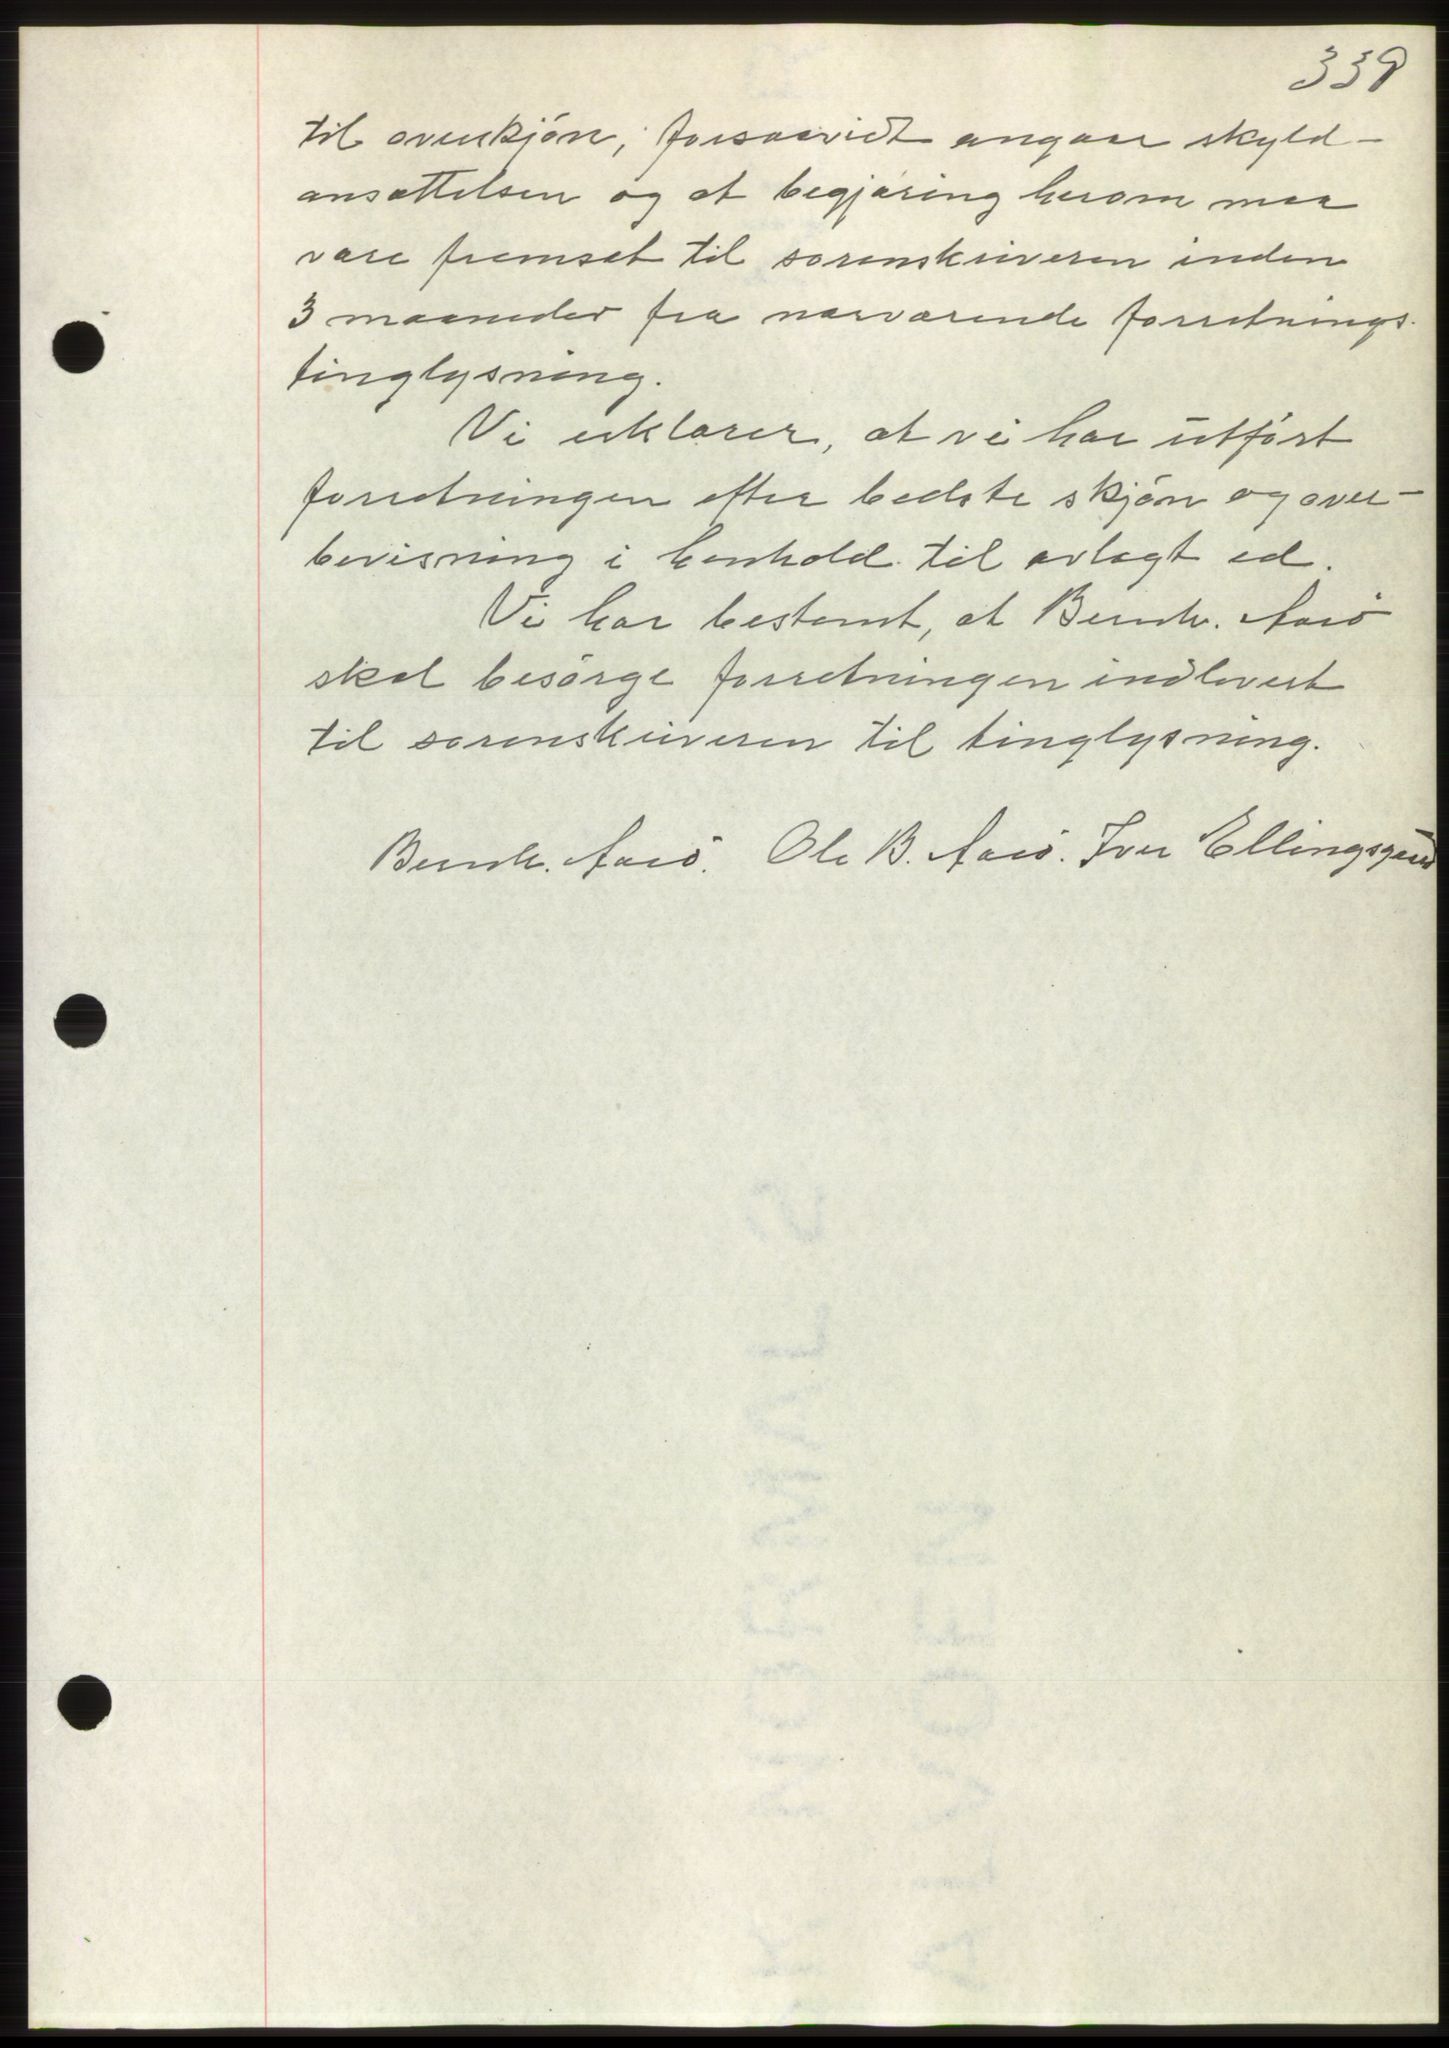 339
til overskjön, forsaavidt angaar skyld-
ansættelsen og at begjæring herom maa
være fremsat til sorenskriveren inden
3 maaneder fra nærværende forretnings
tinglysning.
Vi erklærer, at vi har utført
forretningen efter bedste skjön og over-
bevisning i henhold til avlagt ed.
Vi har bestemt, at Bernh. Aasö
skal besörge forretningen indlevert
til sorenskriveren til tinglysning.
Bernh. Aasö. Ole B. Aasö. Iver Ellingsgaard